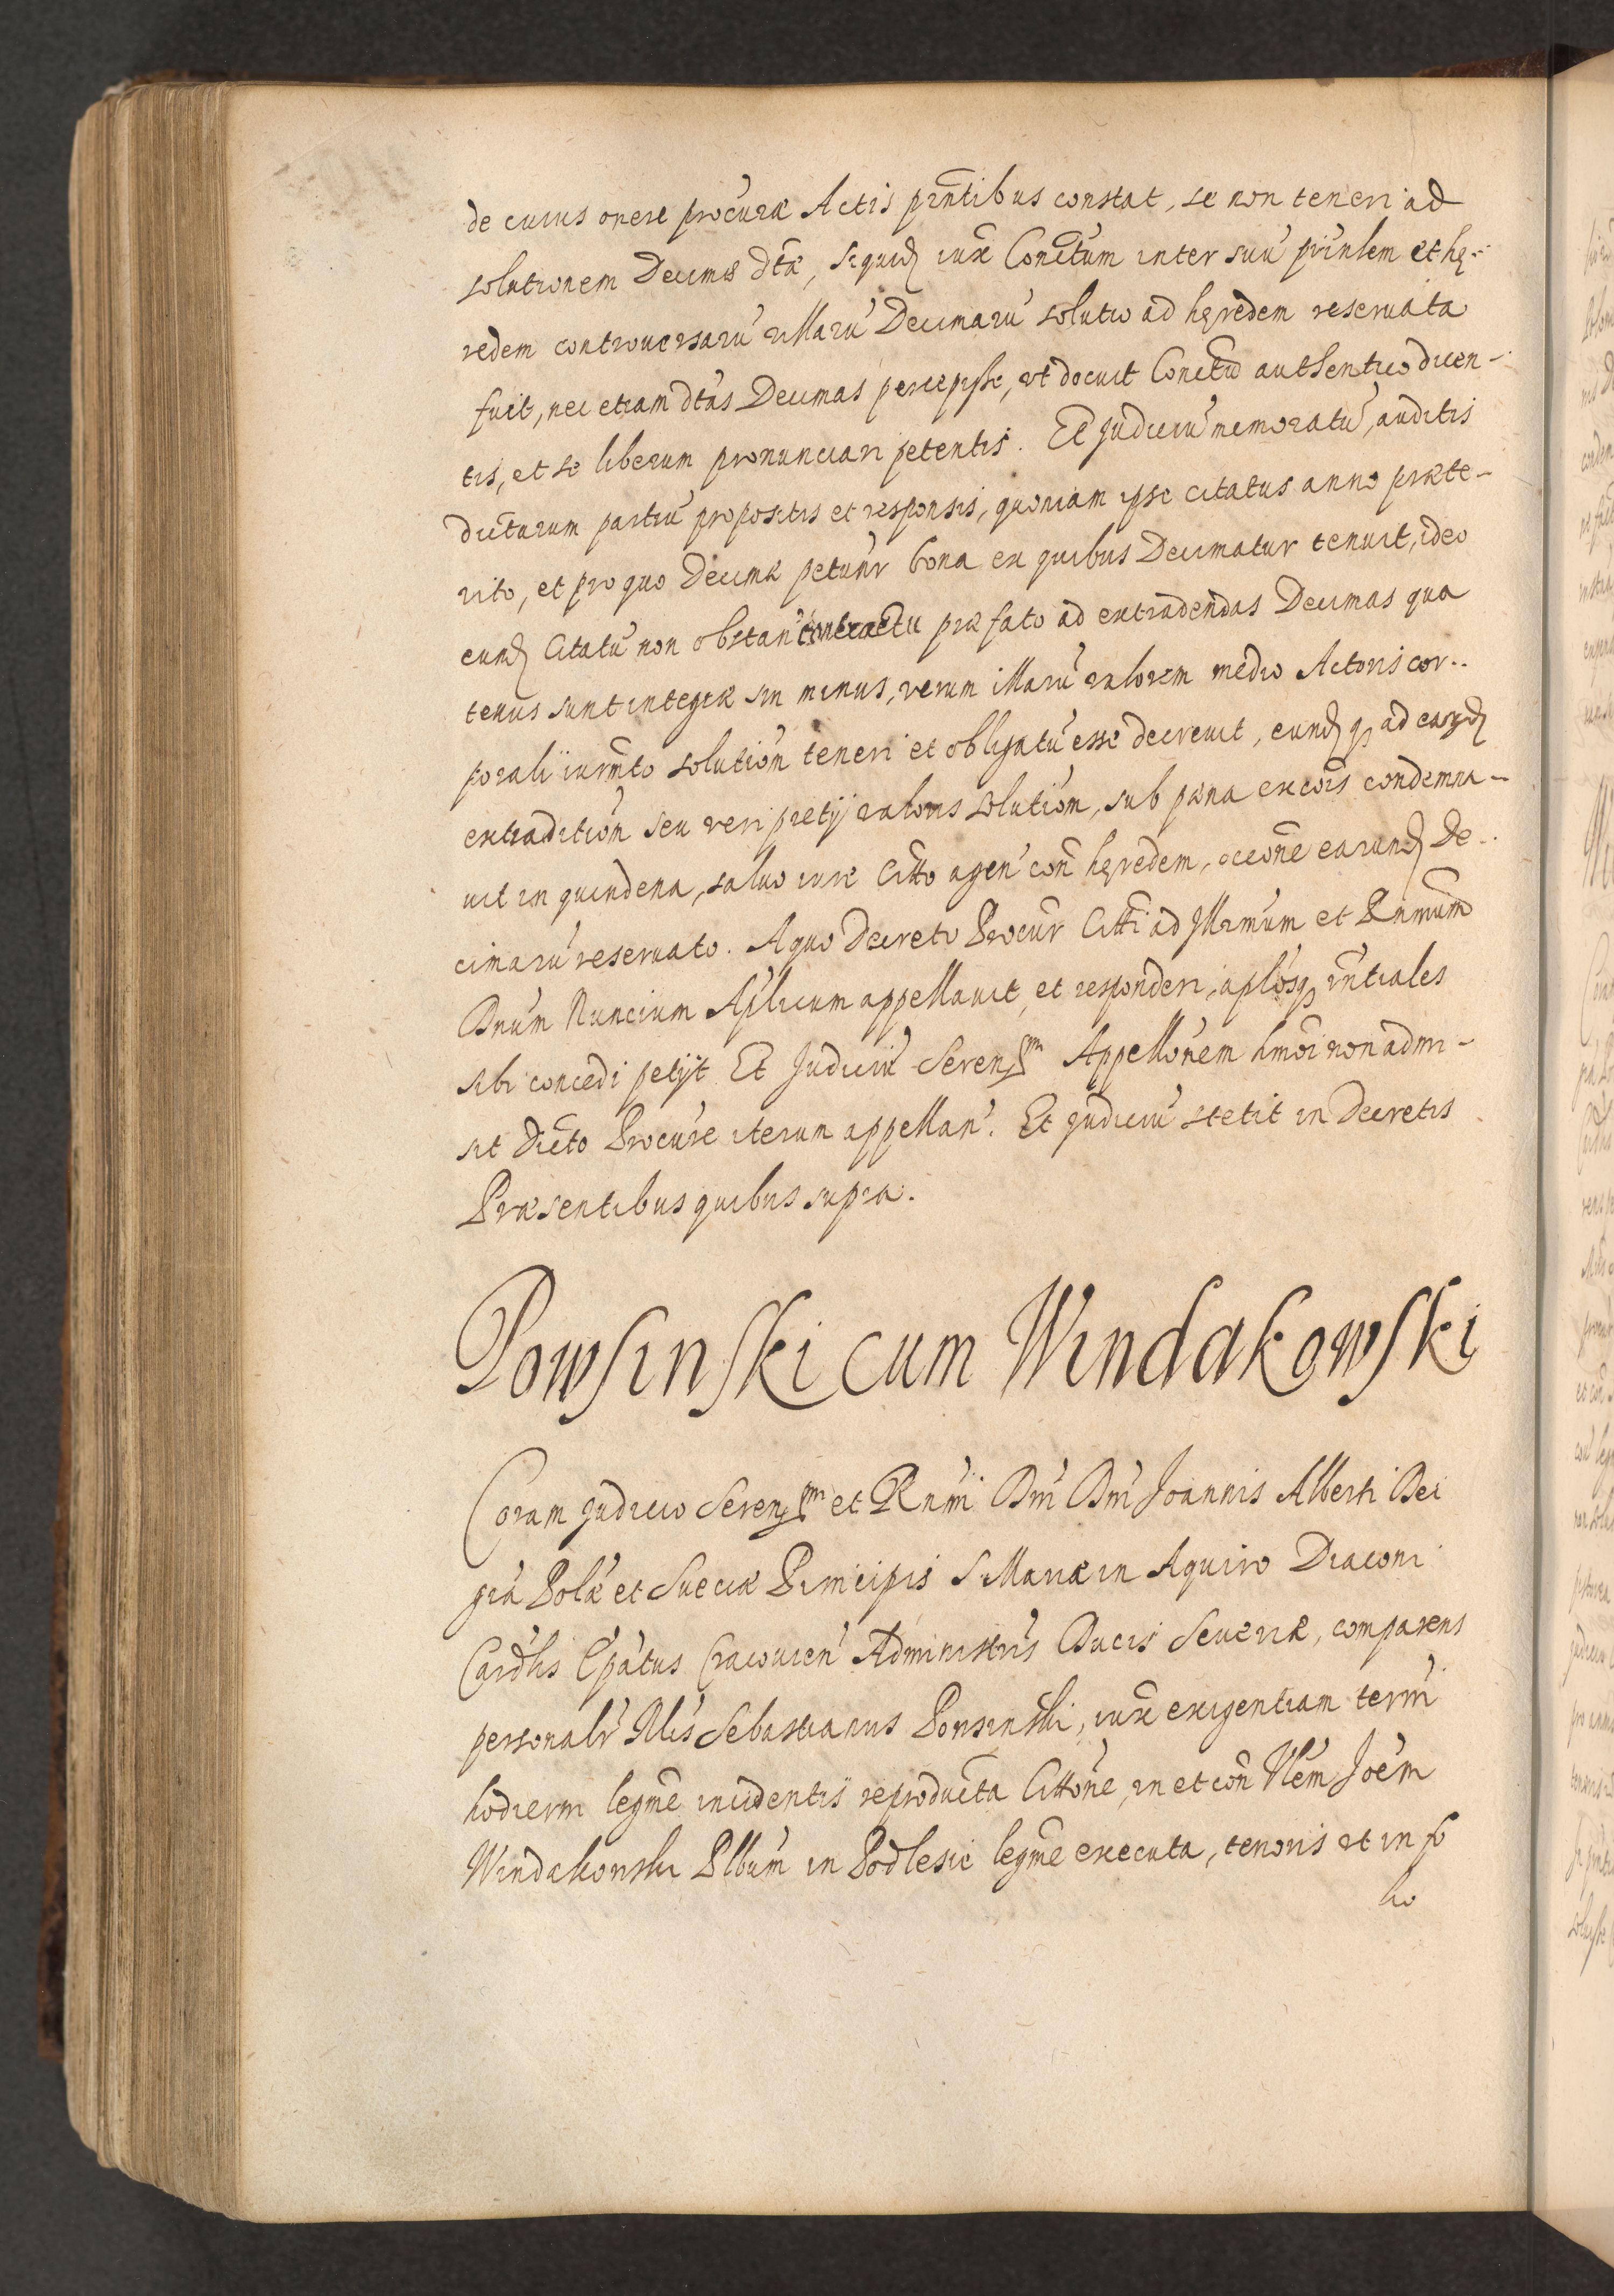 de cuius onere procuræ Actis pñtibus constat, se non teneri ad
solutionem Decimæ dtæ, siquid iuxᷓ Contrtum inter suũ prinlem et hę-
redem controversarũ illarũ Decimarũ solutio ad hęredem reseruata
fuit, nec etiam dtas Decimas percepisse, ut docuit Conttũ authentico dicen-
tis, et se liberum pronunciari petentis. Et Judiciũ memoratũ, auditis
dictarum partiũ propositis et responsis, quoniam ipse citatus anno præte-
rito, et pro quo Decimæ petunr bona ex quibus Decimatur tenuit, ideo
eund Citatũ non obstan' contractu præfato ad extradendas Decimas qua
tenus sunt integræ sin minus, verum illarũ valorem medio Actoris cor-
porali iurmto solution' teneri et obligatũ esse decreuit, eundq ad easd
extradition' seu veri pretij valoris solution', sub pæna excois condemna-
uit in quindena, saluo iure Citto agen' con hęredem, occone earund De-
cimarũ reseruato. A quo decreto Procur Citti ad Illrmum et Rnmum
Dnum Nuncium Aplicum appellauit, et responderi, aplosq rntiales
sibi concedi petijt Et Judiciũ Serenssmi Appellonem hmoi non admi-
sit dicto Procure iterum appellan'. Et Judiciũ stetit in decretis
Præsentibus quibus supra.
Powsinski cum Windakowski
Coram Judicio Serenssmi et Rnmi Dni Dni Joannis Alberti Dei
gra Polæ et Sueciæ Principis S Mariæ in Aquiro Diaconi
Cardlis Epatus Cracouien' Administris Ducis Seueriæ, comparens
personalr Nlis Sebastianus Powsinski, iuxᷓ exigentiam term'
hodierni legme incidentis reproducta Cittone, in et con Nlem Joem
Windakowski Plbum in Podlesie legme executa, tenoris ut in fo
lio